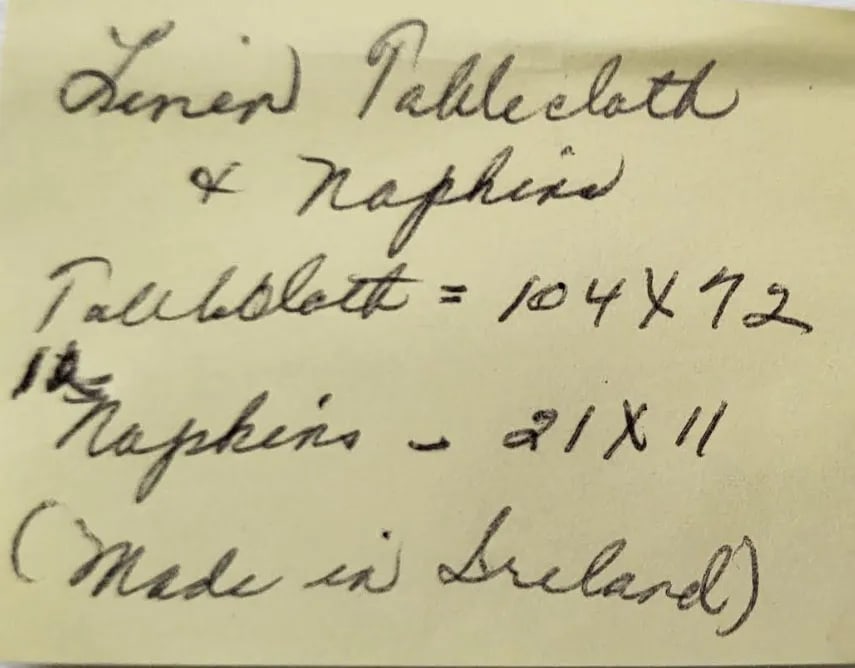 Linen Tablecloth
& Napkins
Tablecloth = 104 X 72
Napkins - 21 X 11
(Made in Ireland)